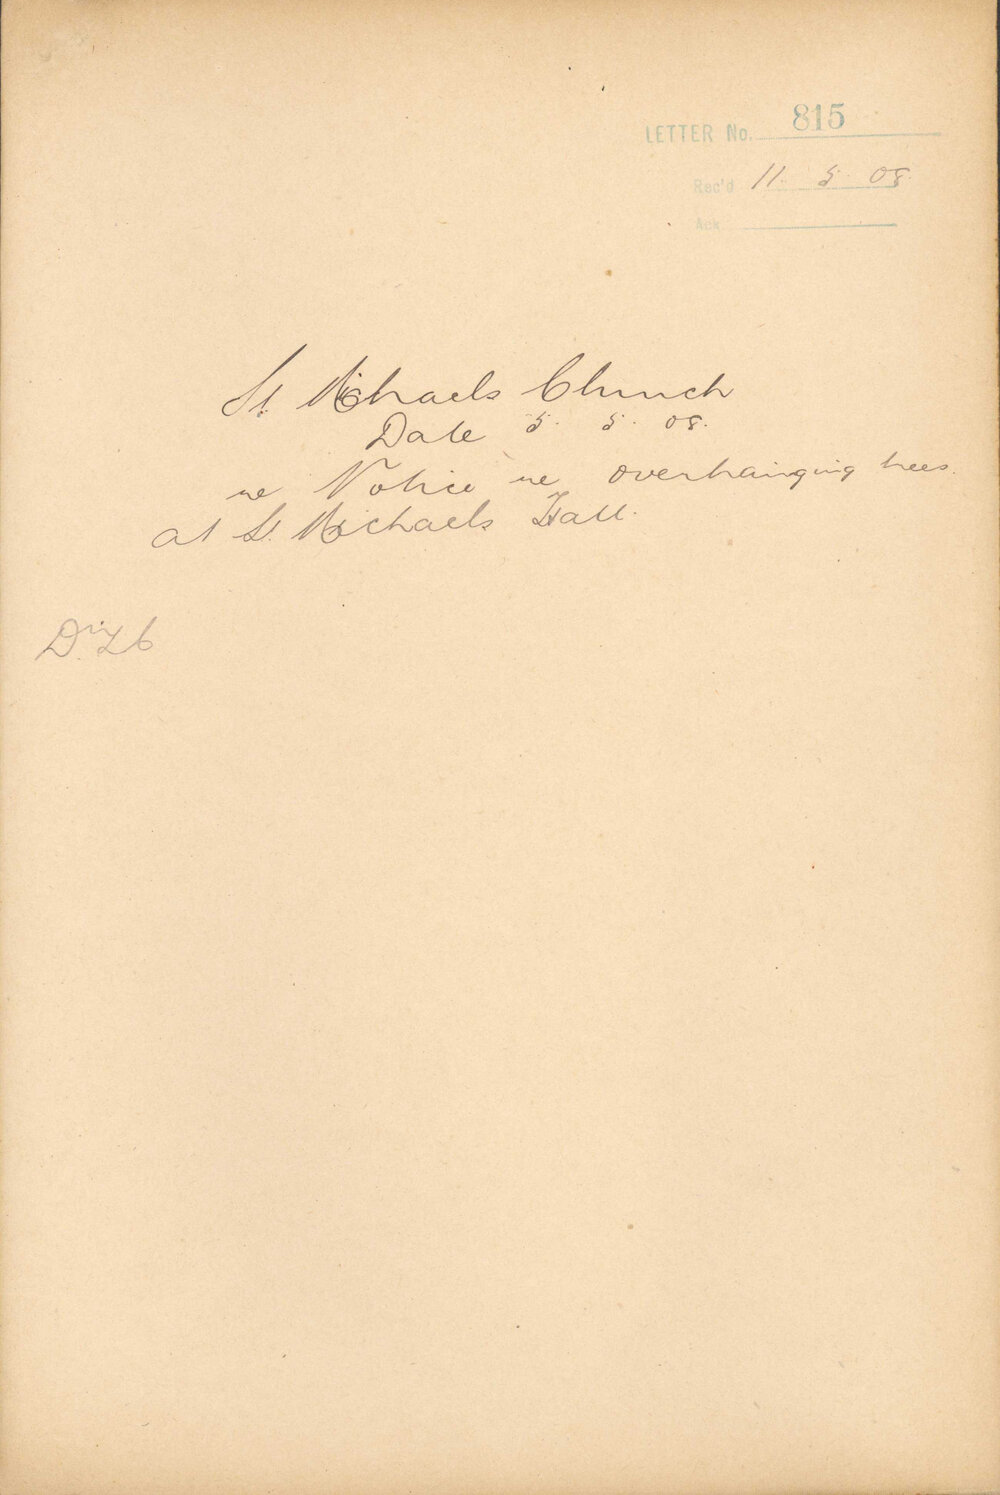 LETTER No. 815
Rec'd 11. 5. 08.
Ack
St. Michaels Church
Date 5. 5. 08.
re Notice re overhainging trees.
at St. Michaels Hall.